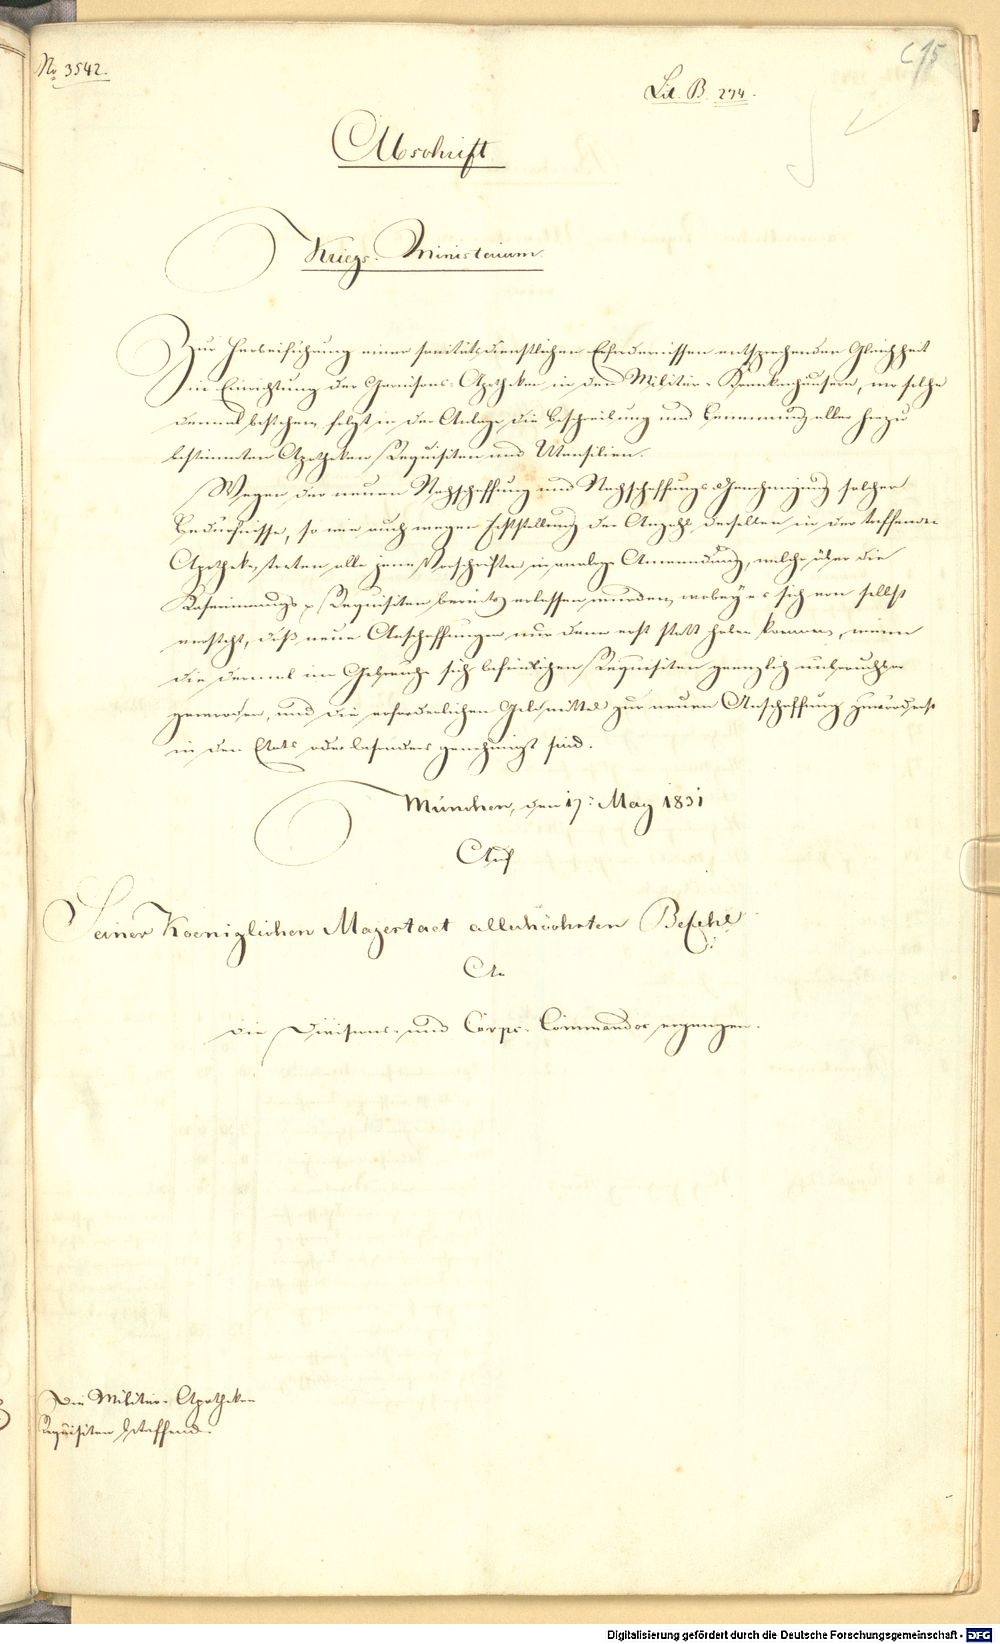 No 3542.
C 15
Lit. B. 274.
Abschrift
Kriegs-Ministerium
Zur Herbeiführung einer sanitätsdienstlichen Erfordernissen entsprechenden Gleichheit
in Einrichtung der Garnisons-Apotheken in den Militär-Krankenhäusern, wo solche
dermal bestehen, folgt in der Anlage die Beschreibung und Benennung aller hiezu
bestimmten Apotheken Requisiten und Utensilien.
Wegen der neuen Nachschaffung und Nachschaffungs Genehmigung solcher
Bedürfnisse, so wie auch wegen Feststellung der Anzahl derselben in der treffenden
Apotheke, treten alle jene Vorschriften in analoge Anwendung, welche über die
Kasernirungs Requisiten bereits erlassen wurden, wobey es sich von selbst
versteht, daß neue Anschaffungen nur dann erst statt haben können, wenn
die dermal im Gebrauche sich befindlichen Requisiten gaenzlich unbrauchbar
geworden, und die erforderlichen Geldmittel zur neuen Anschaffung zuvörderst
in den Etats oder besonders genehmigt sind.
München, den 17. May 1831
Auf
Seiner Koeniglichen Majestaet allerhöchsten Befehl
An
die Divisions- und Corps-Commandos ergangen.
Die Militär-Apotheken
Requisiten betreffend.
Digitalisierung gefördert durch die Deutsche Forschungsgemeinschaft - DFG